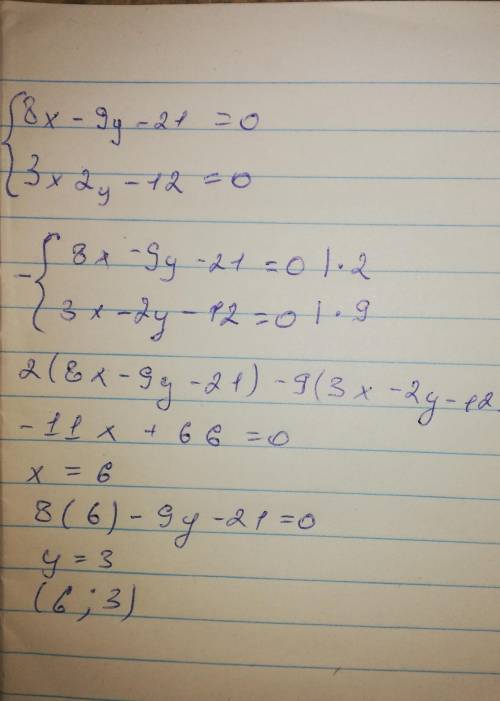 {8x - 9y - 21 = 0
3x 2y - 12 = 0
- {8x - 9y - 21 = 0 | · 2
3x - 2y - 12 = 0 | · 9
2(8x - 9y - 21) - 9(3x - 2y - 12
-11x + 66 = 0
x = 6
8(6) - 9y - 21 = 0
y = 3
(6 ; 3)